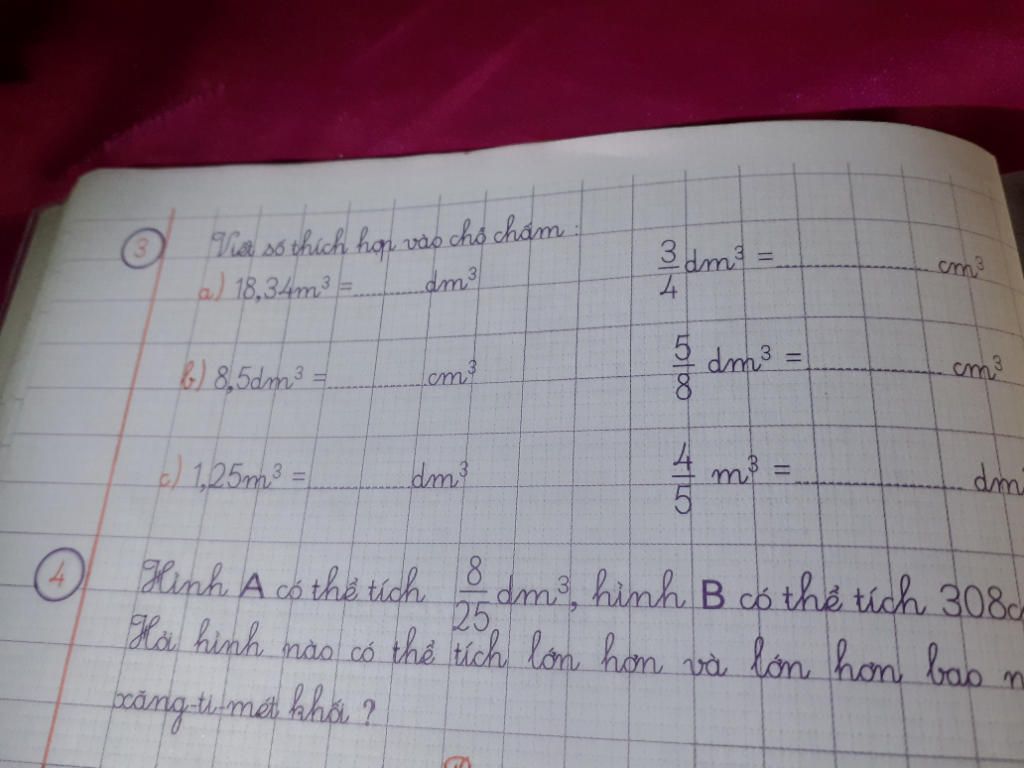 3 Viết số thích hợp vào chỗ chấm:
a) 18,34m³ = ........ dm³ 3/4 dm³ = ........ cm³
b) 8,5dm³ = ........ cm³ 5/8 dm³ = ........ cm³
c) 1,25m³ = ........ dm³ 4/5 m³ = ........ dm
4 Hình A có thể tích 8/25 dm³, hình B có thể tích 308c
Hỏi hình nào có thể tích lớn hơn và lớn hơn bao n
xăng-ti-mét khối?